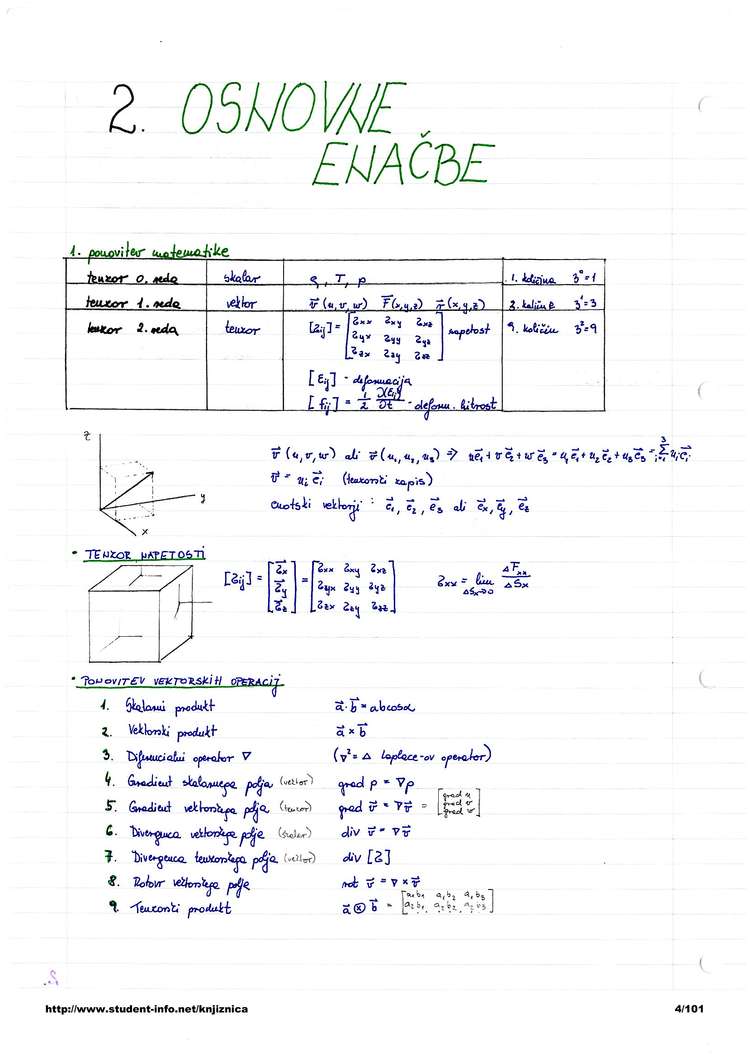 2. OSNOVNE
ENAČBE
1. ponovitev matematike
tenzor 0. reda skalar ρ, T, p 1. količina 3⁰=1
tenzor 1. reda vektor v⃗ (u, v, w) F⃗(x,y,z) r⃗(x,y,z) 3. količine 3¹=3
tenzor 2. reda tenzor [τij] = [τxx τxy τxz napetost 9. količin 3²=9
τyx τyy τyz
τzx τzy τzz]
[εij] - deformacija
[ε̇ij] = 1/2 ∂(εij)/∂t - deform. hitrost
z
y
x
v⃗ (u, v, w) ali v⃗ (u₁, u₂, u₃) => ue⃗₁ + ve⃗₂ + we⃗₃ = u₁e⃗₁ + u₂e⃗₂ + u₃e⃗₃ = Σ³ᵢ₌₁ uᵢe⃗ᵢ
v⃗ = uᵢ e⃗ᵢ (tenzorski zapis)
enotski vektorji : e⃗₁, e⃗₂, e⃗₃ ali e⃗x, e⃗y, e⃗z
• TENZOR NAPETOSTI
[τij] = [τ⃗x τ⃗y τ⃗z] = [τxx τxy τxz
τyx τyy τyz
τzx τzy τzz]
τxx = lim ΔSx→0 ΔFxx/ΔSx
• PONOVITEV VEKTORSKIH OPERACIJ
1. Skalarni produkt a⃗·b⃗ = abcosα
2. Vektorski produkt a⃗ × b⃗
3. Diferencialni operator ∇ (∇² = Δ laplace-ov operator)
4. Gradient skalarnega polja (vektor) grad p = ∇p
5. Gradient vektorskega polja (tenzor) grad v⃗ = ∇v⃗ = [grad u
grad v
grad w]
6. Divergenca vektorskega polja (skalar) div v⃗ = ∇v⃗
7. Divergenca tenzorskega polja (vektor) div [τ]
8. Rotor vektorskega polja rot v⃗ = ∇ × v⃗
9. Tenzorski produkt a⃗ ⊗ b⃗ = [a₁b₁ a₁b₂ a₁b₃
a₂b₁ a₂b₂ a₂b₃]
2.
http://www.student-info.net/knjiznica 4/101